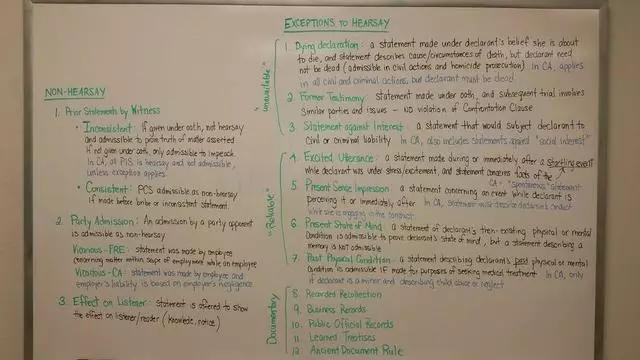 EXCEPTIONS TO HEARSAY
NON-HEARSAY
1. Prior Statements by Witness
• Inconsistent: If given under oath, not hearsay
and admissible to prove truth of matter asserted
If not given under oath, only admissible to impeach.
In CA, all PIS is hearsay and not admissible,
unless exception applies.
• Consistent: PCS admissible as non-hearsay
if made before bribe or inconsistent statement.
2. Party Admission: An admission by a party opponent
is admissible as non-hearsay
Vicarious-FRE: statement was made by employee
concerning matter within scope of employment while an employee
Vicarious-CA: statement was made by employee and
employer's liability is based on employee's negligence
3. Effect on Listener: Statement is offered to show
the effect on listener/reader (knowledge, notice)
"unavailable"
1. Dying declaration: a statement made under declarant's belief she is about
to die, and statement describes cause/circumstances of death, but declarant need
not be dead (admissible in civil actions and homicide prosecution) In CA, applies
in all civil and criminal actions, but declarant must be dead.
2. Former Testimony: statement made under oath, and subsequent trial involves
similar parties and issues - no violation of Confrontation Clause
3. Statement against Interest: a statement that would subject declarant to
civil or criminal liability In CA, also includes statements against "social interest"
"Reliable"
4. Excited Utterance: a statement made during or immediately after a startling event
while declarant was under stress/excitement, and statement concerns facts of the
CA = "spontaneous" statement
5. Present Sense Impression: a statement concerning an event while declarant is
perceiving it or immediately after In CA, statement must describe declarant's conduct
while she is engaging in the conduct
6. Present State of Mind: a statement of declarant's then-existing physical or mental
condition is admissible to prove declarant's state of mind, but a statement describing a
memory is not admissible
7. Past Physical Condition: a statement describing declarant's past physical or mental
condition is admissible if made for purposes of seeking medical treatment In CA, only
if declarant is a minor and describing child abuse or neglect
Documentary
8. Recorded Recollection
9. Business Records
10. Public Official Records
11. Learned Treatises
12. Ancient Document Rule